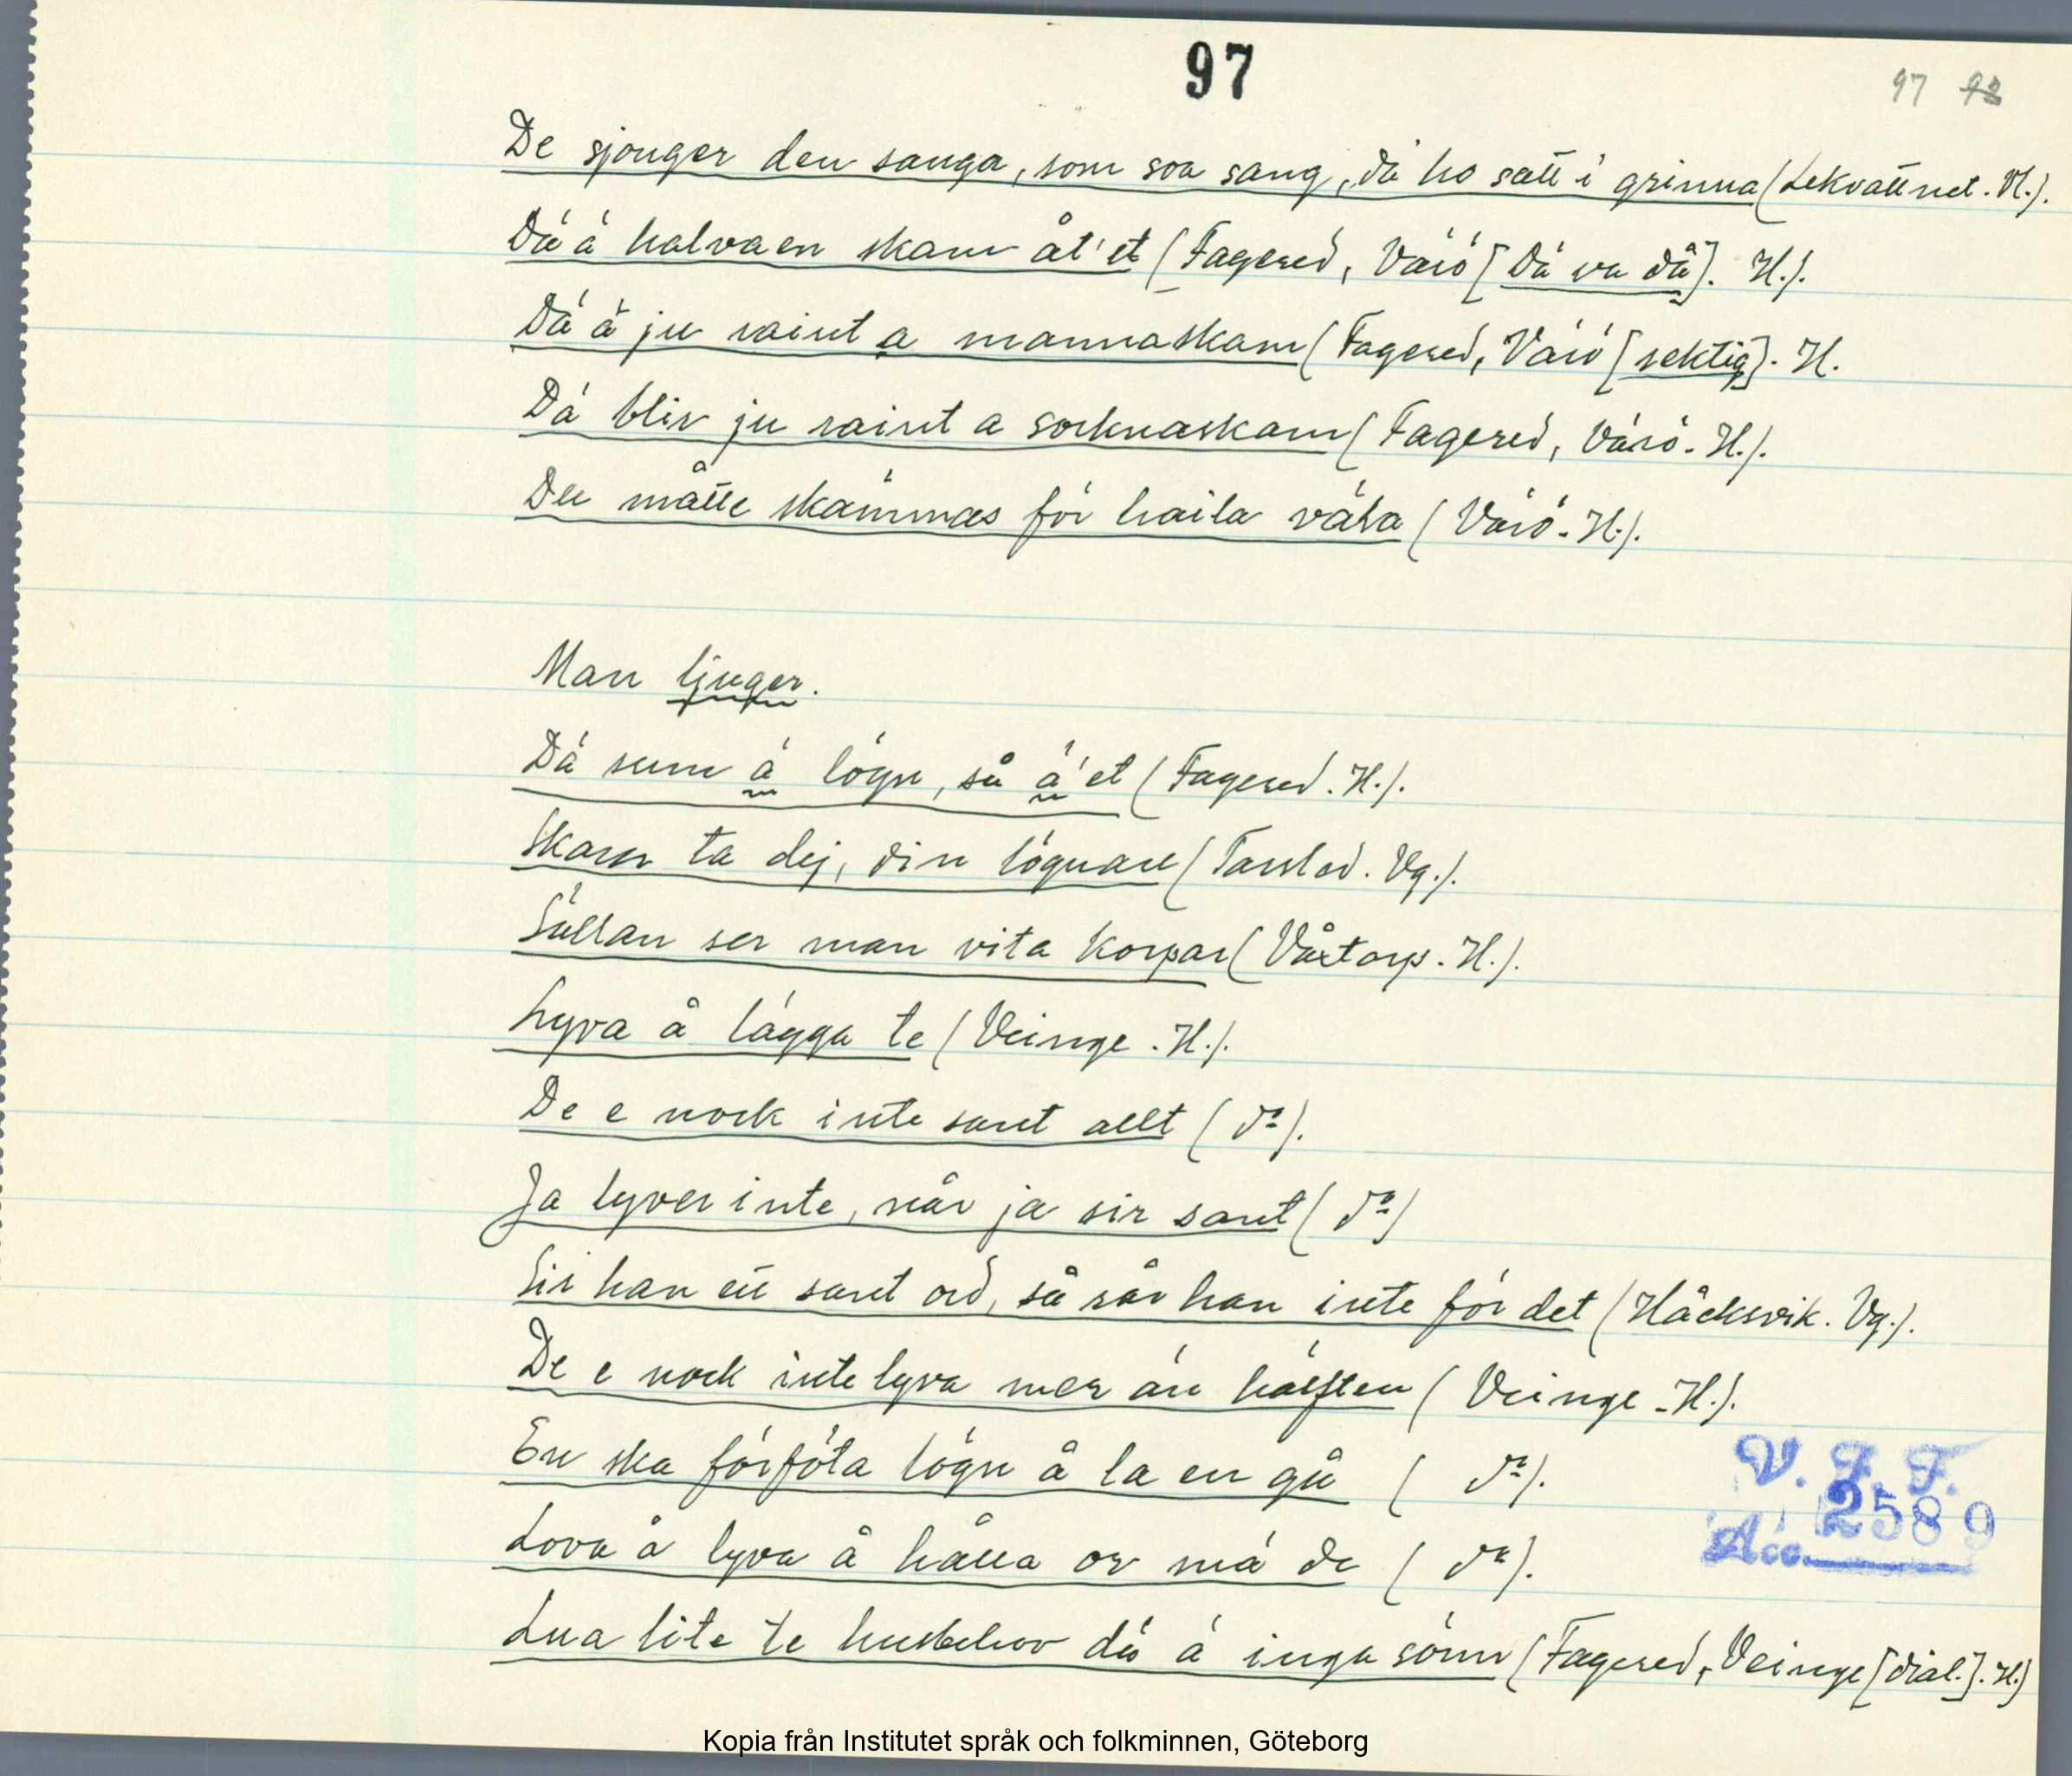 97
97 98
De sjonger den sanga, som soa sang, dä ho satt i grinna (Lekvattnet. Vl.).
Dä ä halvaen skam åt'et (Fagered, Värö [Dä va då]. H.).
Dä ä ju raint a mannaskam (Fagered, Värö [rektig]. H.
Dä blir ju raint a socknaskam (Fagered, Värö. H.).
Du måtte skämmas för haila väla (Värö. H.).
Man ljuger.
Dä sum ä lögn, så ä'et (Fagered. H.).
Skam ta dej, din lögnare (Tarsled. Vg.).
Sällan ser man vita korpar (Våxtorp. H.).
Lyva å lägga te (Veinge. H.).
De e nock inte sant allt (do).
Ja lyver inte, när ja sir sant (do)
Sir han ett sant ord, så rår han inte för det (Håcksvik. Vg.).
De e nock inte lyva mer än hälften (Veinge. H.).
En ska förföta lögn å la en gå (do).
Lova å lyva å hålla or mä de (do).
Lua lite te husbehov dä ä inga sönn (Fagered, Veinge [dial.]. H.)
V. F. F.
Acc. 2589
Kopia från Institutet språk och folkminnen, Göteborg